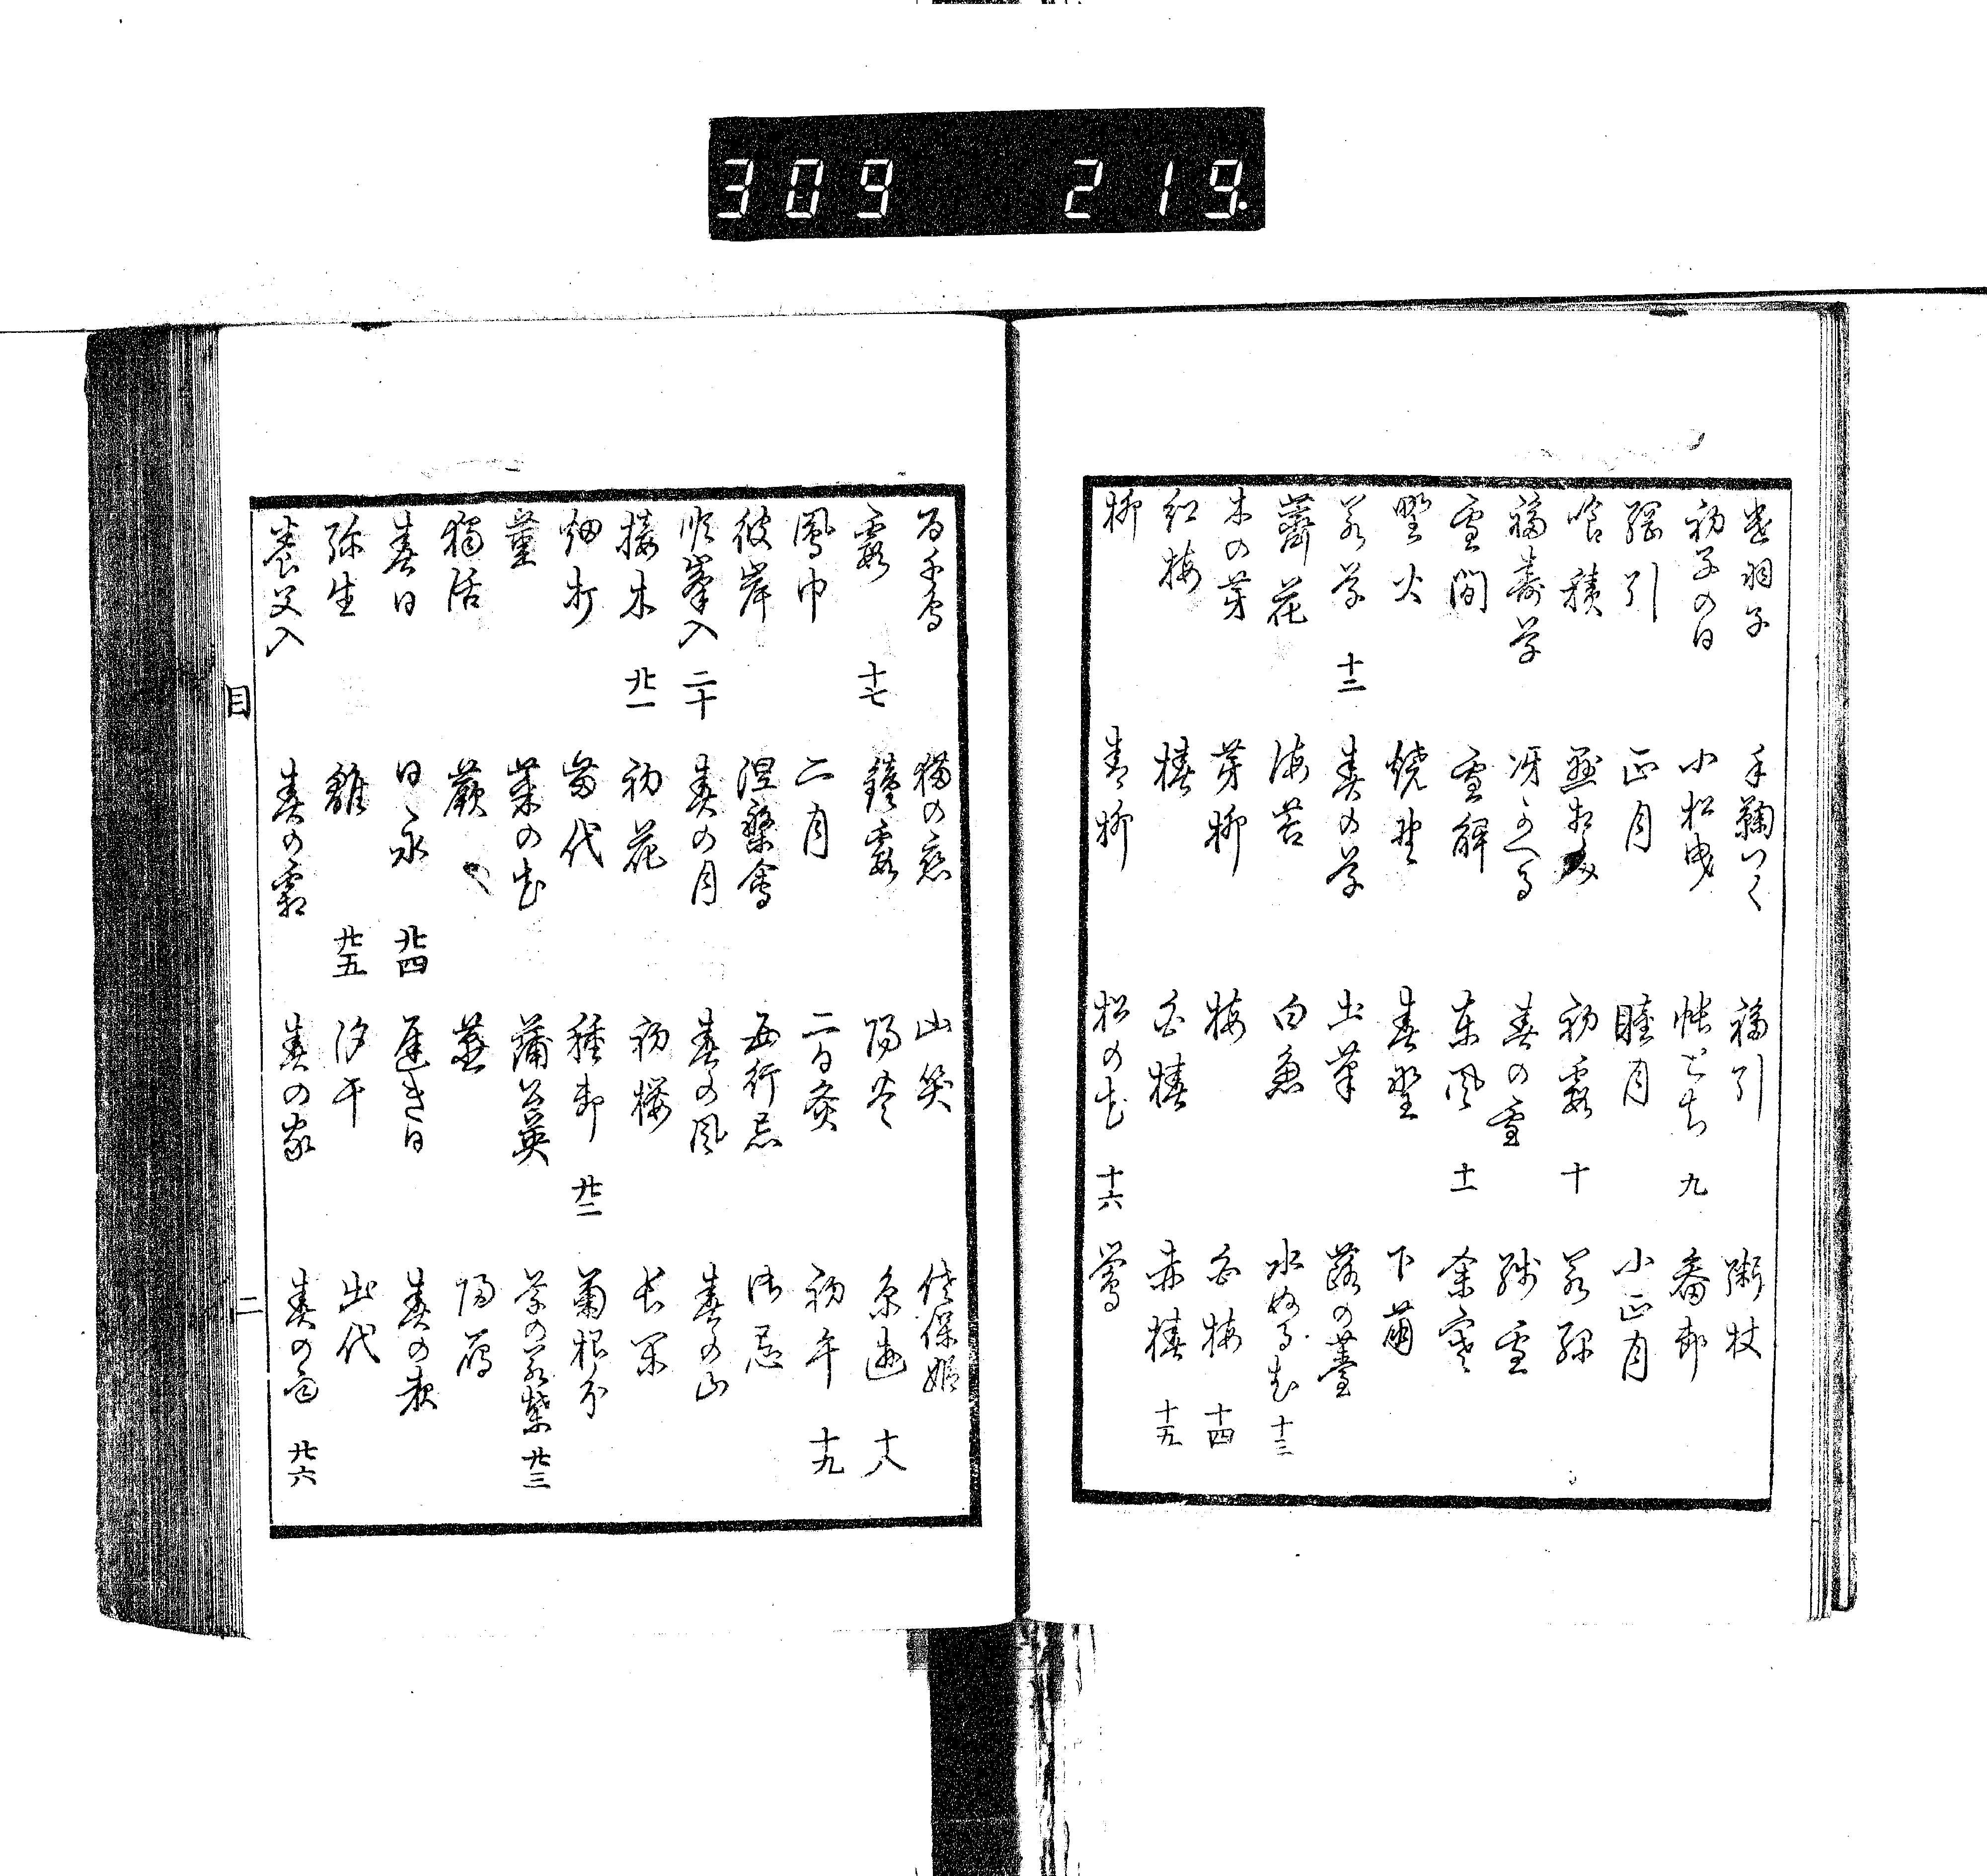 309 219.
遣羽子 手鞠つく 福引 粥杖
初子の日 小松曳 帳とぢ 九 番部
縄引 正月 睦月 小正月
喰積 初霞 十 若緑
福寿草 冴かへる 春の雪 残雪
雪間 雪解 東風 十一 余寒
野火 焼野 春野 下萠
若草 十二 春の草 土筆 蕗の薹
薺花 海苔 白魚 水ぬるむ 十三
木の芽 芽柳 梅 白梅 十四
紅梅 椿 白椿 赤椿 十五
柳 青柳 松の花 十六 鶯
百千鳥 猫の恋 山笑 佐保姫
霞 十七 鐘霞 陽炎 糸遊 十八
凧巾 二月 二日灸 初午 十九
彼岸 涅槃会 西行忌 御忌
順峯入 二十 春の月 春の風 春の山
接木 廿一 初花 初桜 長閑
畑打 苗代 種卸 廿二 菊根分
菫 菜の花 蒲公英 草の若葉 廿三
獨活 蕨 燕 帰雁
春日 日永 廿四 遅き日 春の夜
弥生 雛 廿五 汐干 出代
養父入 春の霜 春の家 春の雨 廿六
目 二